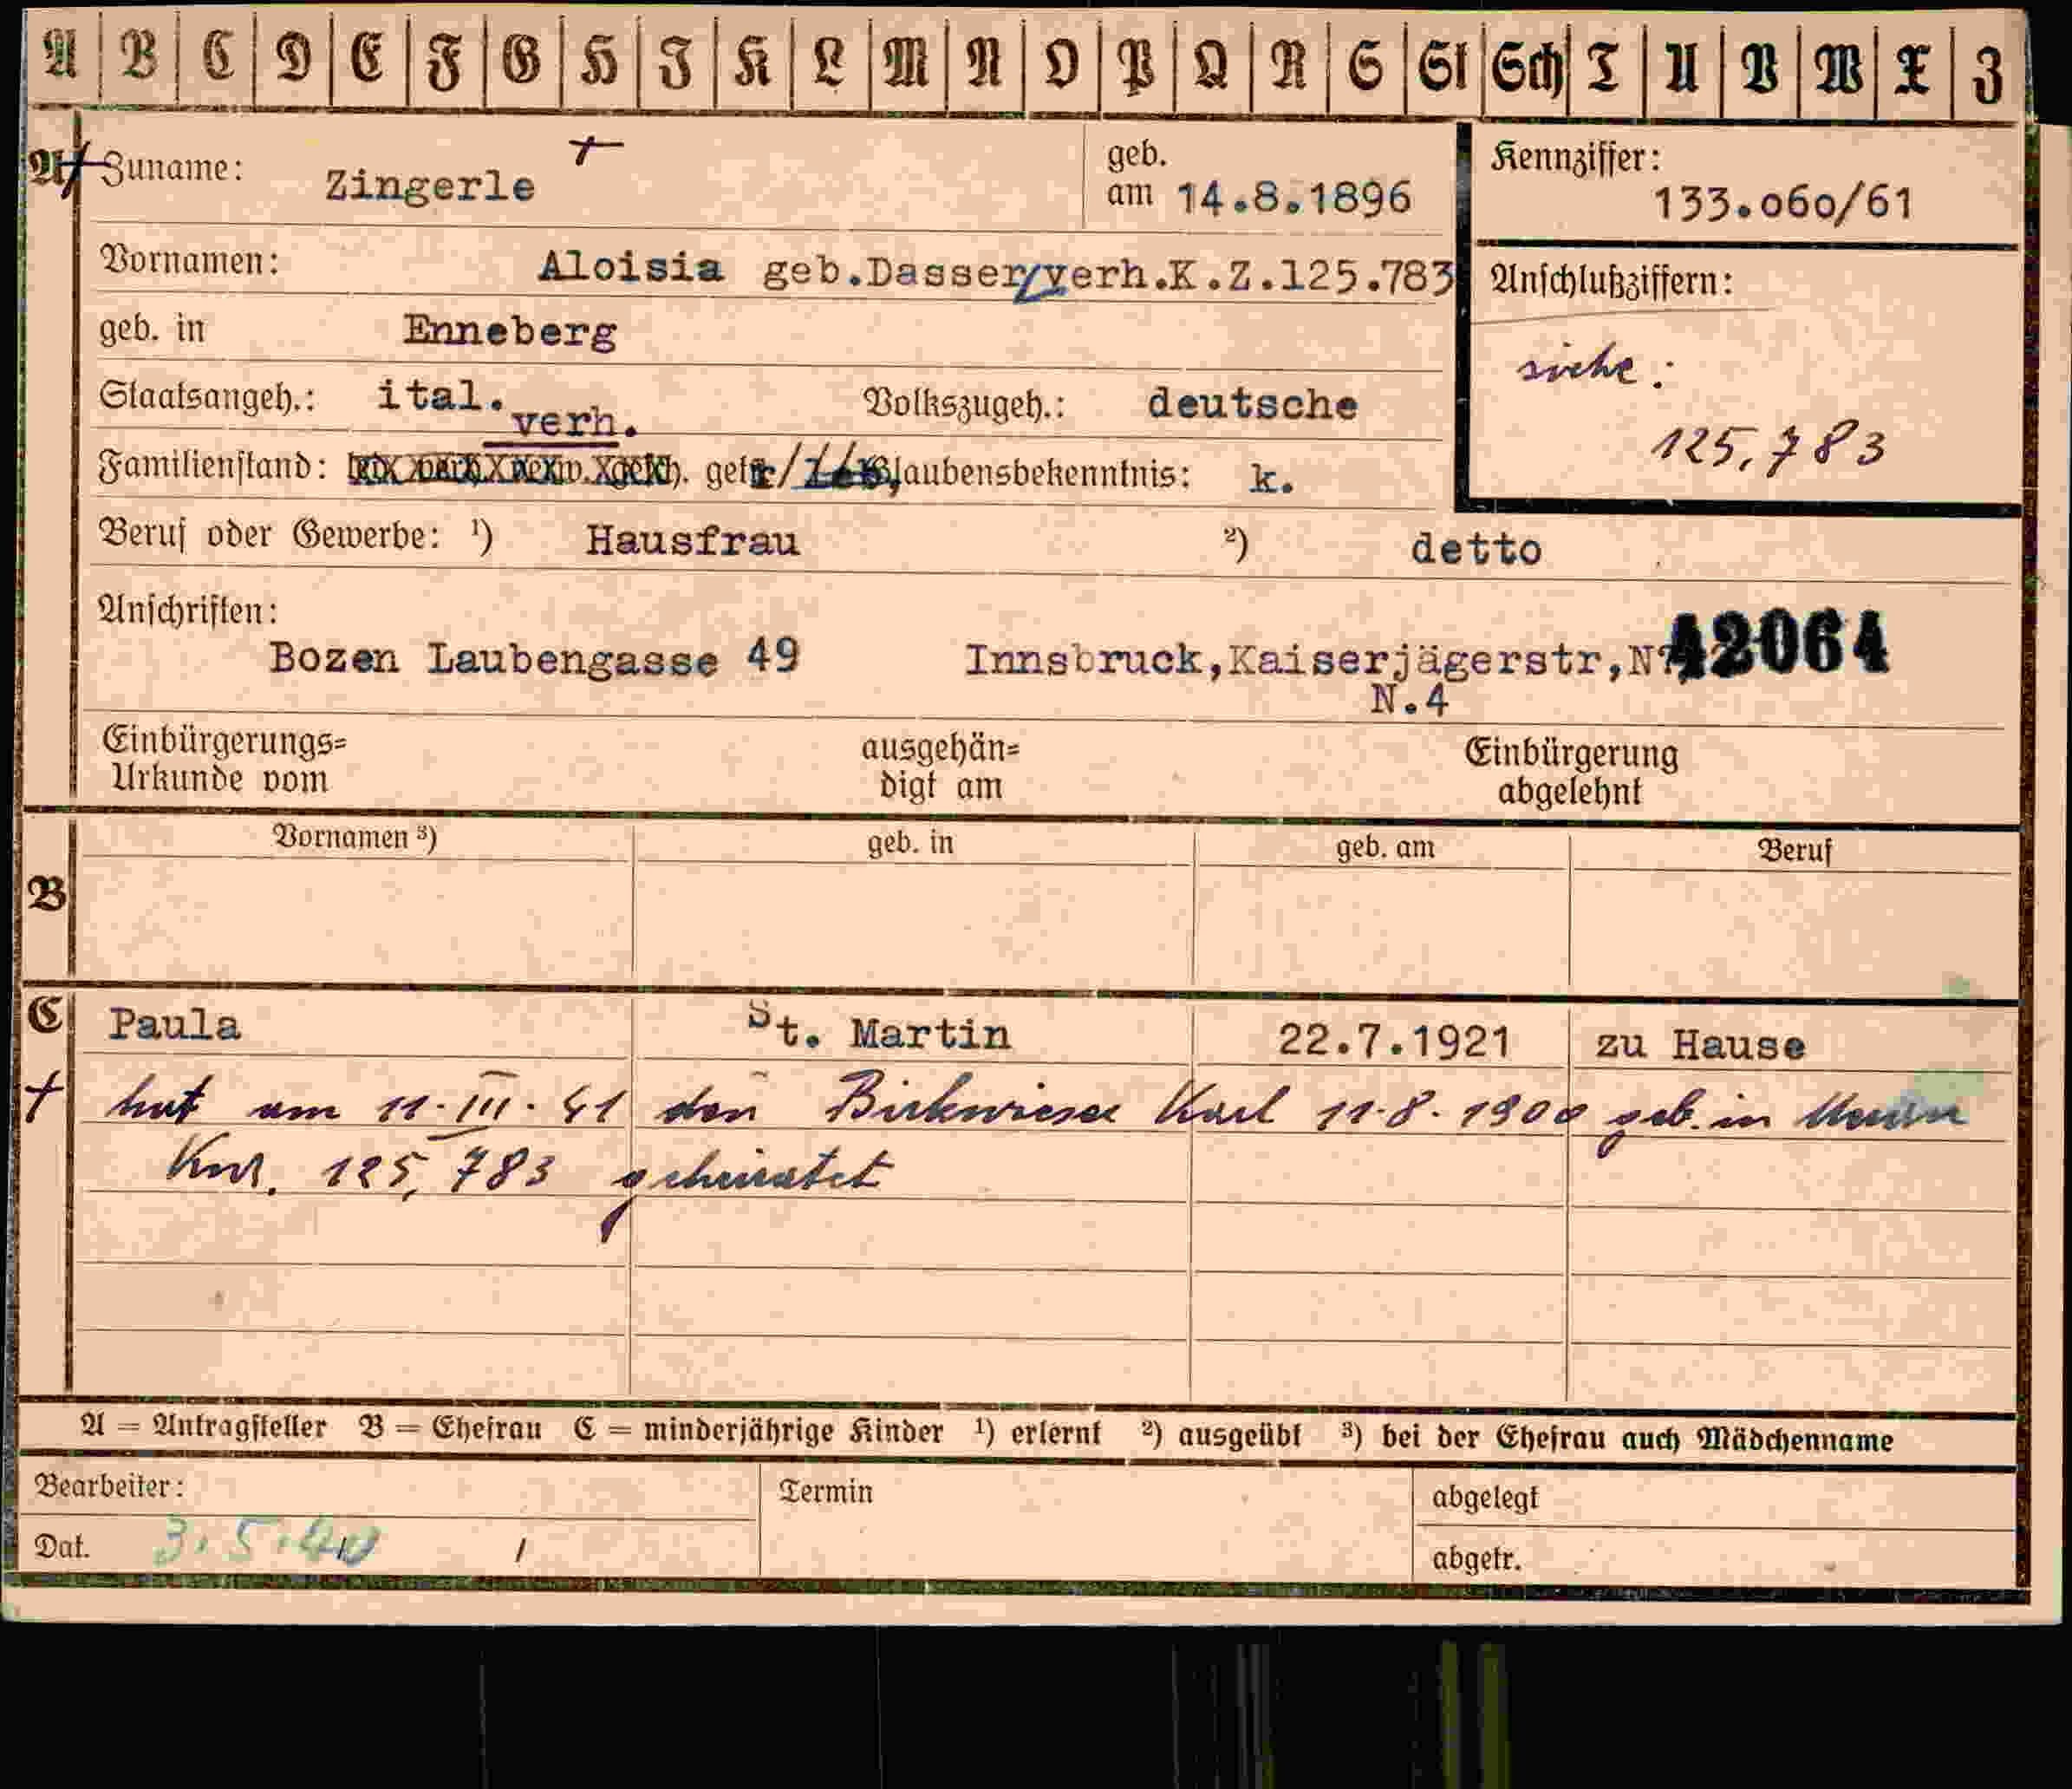 A B C D E F G H I K L M N O P Q R S St Sch T U V W X Z
A Zuname: Zingerle geb. am 14.8.1896 Kennziffer: 133.060/61
Vornamen: Aloisia geb.Dasser/verh.K.Z.125.783 Anschlußziffern:
geb. in Enneberg
siehe:
Staatsangeh.: ital. Volkszugeh.: deutsche
verh.
125,783
Familienstand: getr Glaubensbekenntnis: k.
Beruf oder Gewerbe: ¹) Hausfrau ²) detto
Anschriften:
Bozen Laubengasse 49 Innsbruck,Kaiserjägerstr, 42064
N.4
Einbürgerungs= ausgehän= Einbürgerung
Urkunde vom digt am abgelehnt
B Vornamen ³) geb. in geb. am Beruf
C Paula St. Martin 22.7.1921 zu Hause
+ hat am 11.III.41 den Birkwieser Karl 11.8.1900 geb. in Meran
Knr. 125,783 geheiratet
A = Antragsteller B = Ehefrau C = minderjährige Kinder ¹) erlernt ²) ausgeübt ³) bei der Ehefrau auch Mädchenname
Bearbeiter: Termin abgelegt
Dat. 3.5.40 / abgetr.